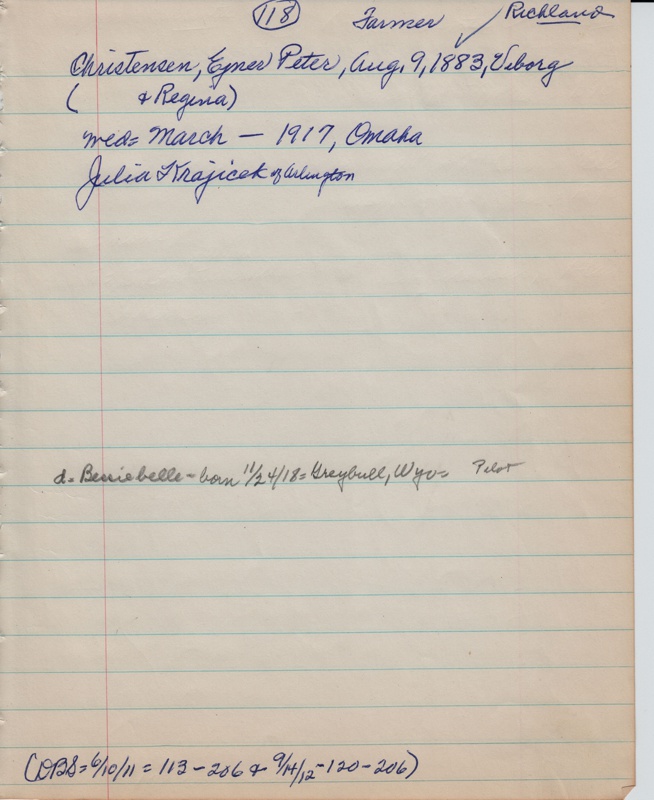 118 Farmer Richland
Christensen, Ejner Peter, Aug. 9, 1883, Viborg
( & Regina)
med= March — 1917, Omaha
Julia Krajicek of Arlington
d. Bessiebelle - born 11/24/18 = Greybull, Wyo= Pilot
(DBS = 6/10/11 = 113 - 206 & 9/14/12 - 120 - 206)